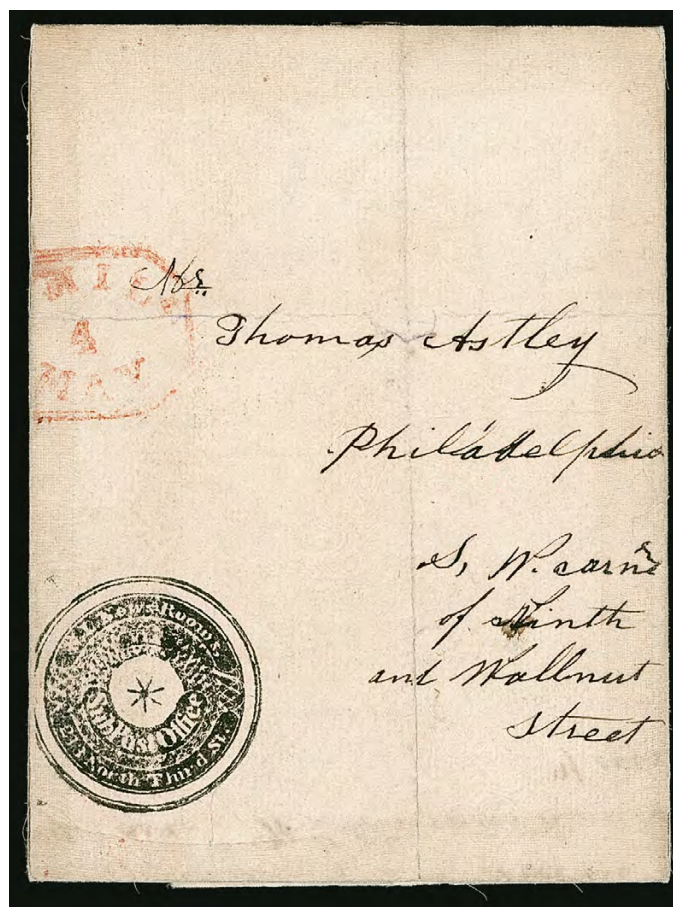 Mr.
Thomas Astley
Philadelphia
S, W. carnr
of Ninth
and Wallnut
Street
4
MAY
Rooms
Office
North Third St.